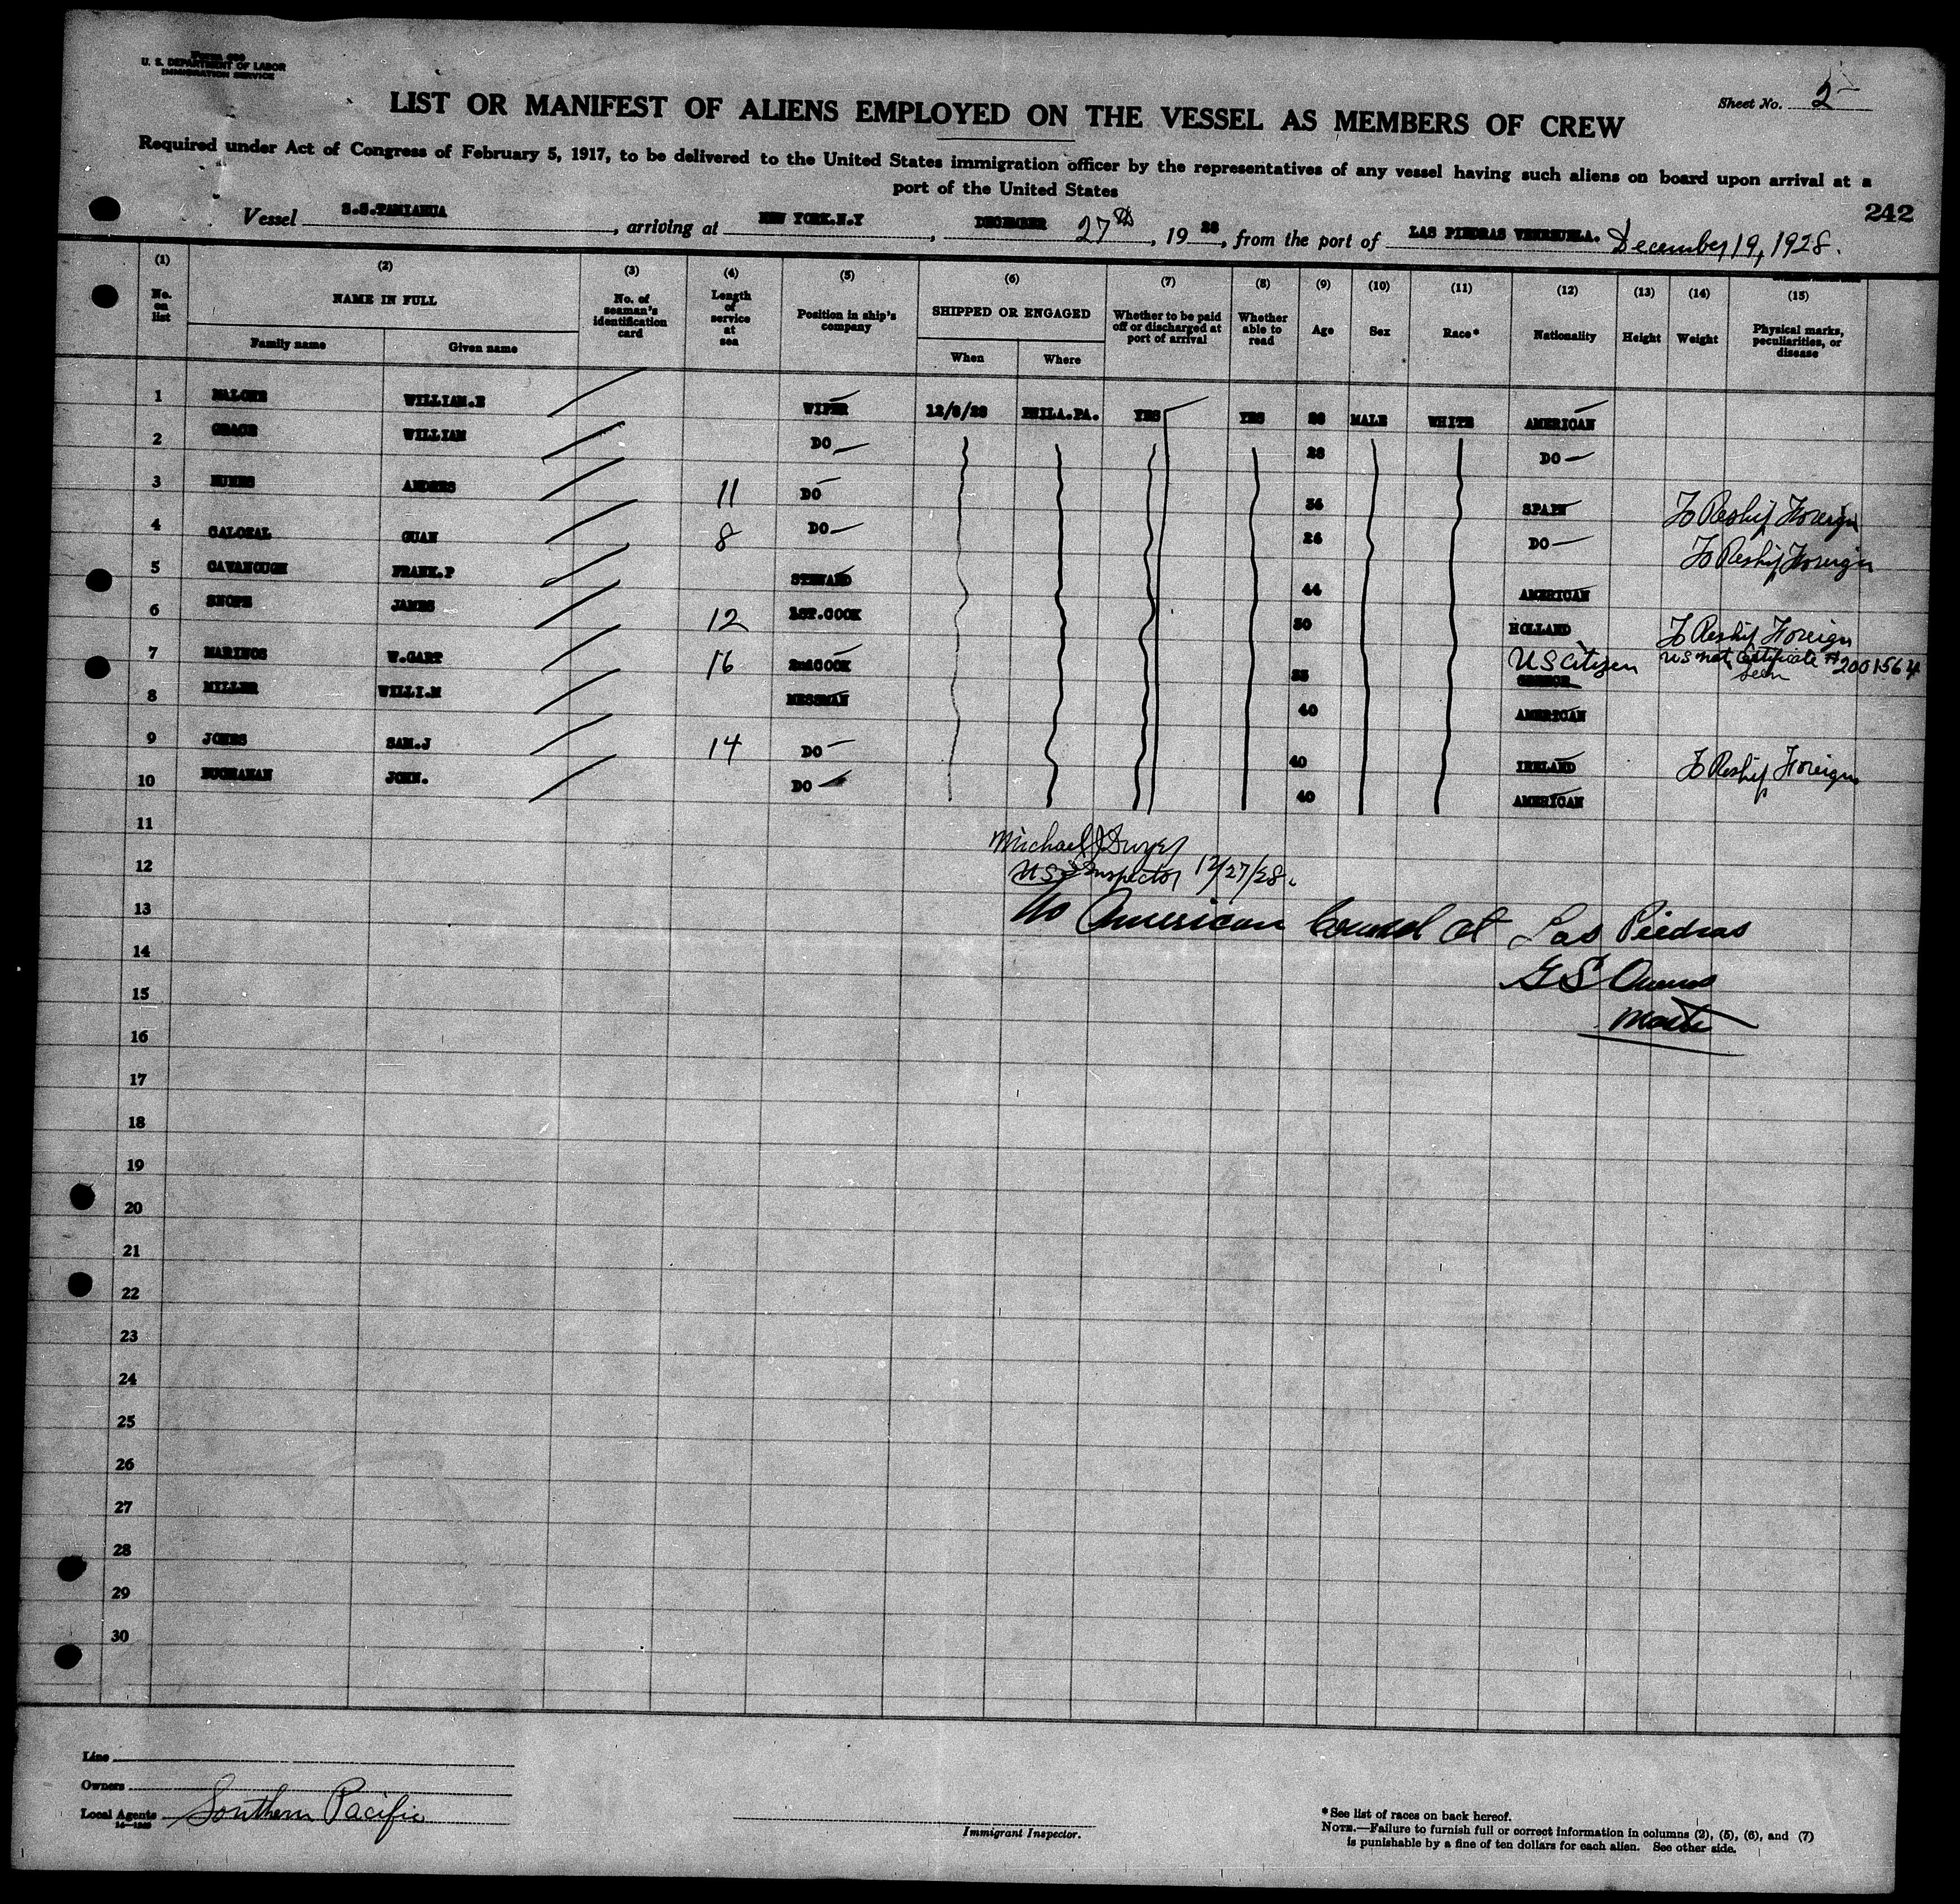 Form 689
U. S. DEPARTMENT OF LABOR
IMMIGRATION SERVICE
Sheet No. 2
LIST OR MANIFEST OF ALIENS EMPLOYED ON THE VESSEL AS MEMBERS OF CREW
Required under Act of Congress of February 5, 1917, to be delivered to the United States immigration officer by the representatives of any vessel having such aliens on board upon arrival at a
port of the United States
242
Vessel S.S.TAMIAHUA, arriving at NEW YORK.N.Y, DECEMBER 27th, 1928, from the port of LAS PIEDRAS VENEZUELA. December 19, 1928.
(1) (2) (3) (4) (5) (6) (7) (8) (9) (10) (11) (12) (13) (14) (15)
No. on list NAME IN FULL No. of seaman's identification card Length of service at sea Position in ship's company SHIPPED OR ENGAGED Whether to be paid off or discharged at port of arrival Whether able to read Age Sex Race* Nationality Height Weight Physical marks, peculiarities, or disease
Family name Given name When Where
1 MALONE WILLIAM.E WIPER 12/8/28 PHILA.PA. YES YES MALE WHITE AMERICAN
2 GRACE WILLIAM DO 28 DO
3 ANDRES 11 DO 36 SPAIN To Reship Foreign
4 GUAN 8 DO 26 DO To Reship Foreign
5 CAVANOUGH FRANK.P STEWARD 44 AMERICAN
6 JAMES 12 1ST.COOK 50 HOLLAND To Reship Foreign
7 MARINOS W.GART 16 2nd COOK 35 US Citizen GREECE US nat. Certificate # 2001564 seen
8 MILLER WILLI.M MESSMAN 40 AMERICAN
9 JONES SAM.J 14 DO 40 IRELAND To Reship Foreign
10 BUCHANAN JOHN. DO 40 AMERICAN
11
Michael J Dwyer
12
US Inspector 12/27/28.
13
No American Counsel at Las Piedras
14
G S Owens
15
Master
16
17
18
19
20
21
22
23
24
25
26
27
28
29
30
Line
Owners
Local Agents Southern Pacific
Immigrant Inspector.
*See list of races on back hereof.
NOTE.—Failure to furnish full or correct information in columns (2), (5), (6), and (7)
is punishable by a fine of ten dollars for each alien. See other side.